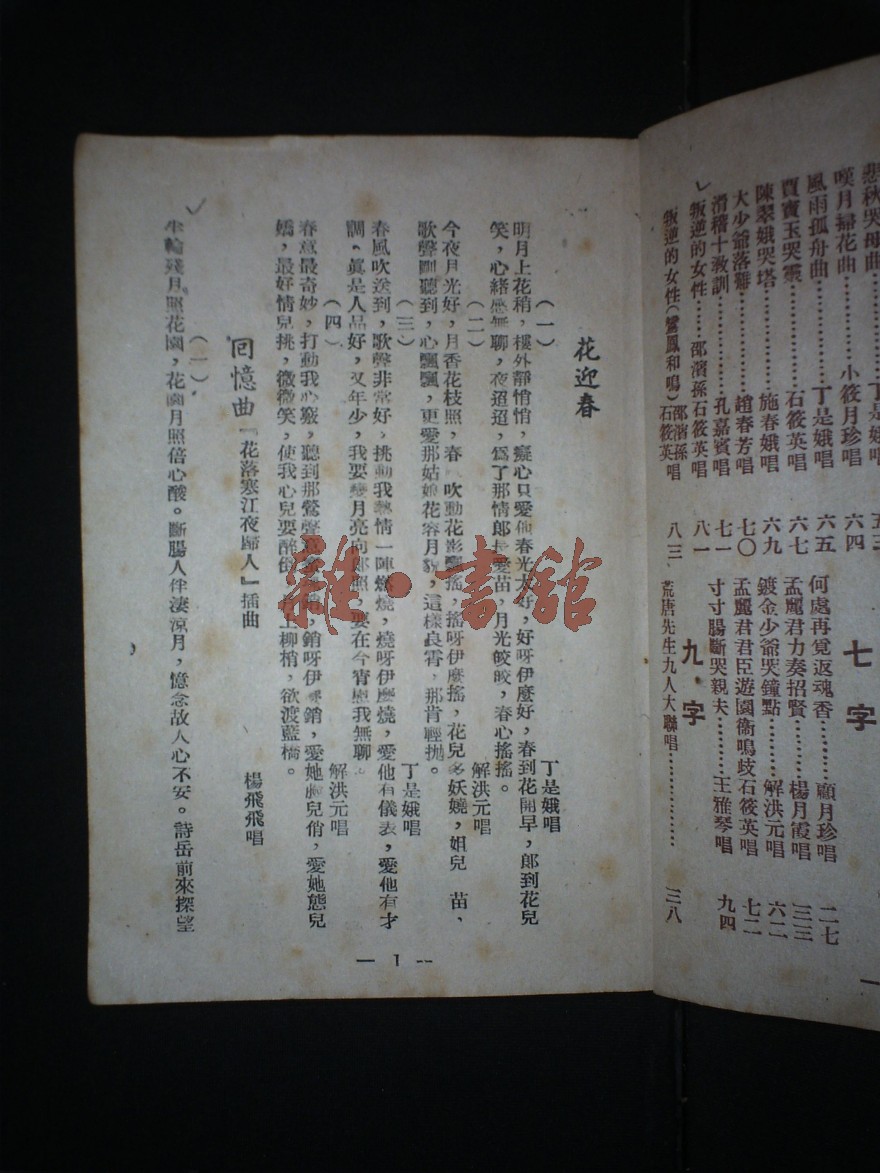 悲秋哭母曲………丁是娥唱 五三
嘆月掃花曲………小筱月珍唱 六四
風雨孤舟曲………丁是娥唱 六五
賈寶玉哭靈………石筱英唱 六七
陳翠娥哭塔………施春娥唱 六九
大少爺落難………趙春芳唱 七〇
滑稽十教訓………孔嘉賓唱 七一
叛逆的女性……邵濱孫石筱英唱 八一
叛逆的女性(鸞鳳和鳴)邵濱孫石筱英唱 八三
七字
何處再覓返魂香………顧月珍唱 二七
孟麗君力奏招賢………楊月霞唱 三三
鍍金少爺哭鐘點………解洪元唱 六二
孟麗君君臣遊園衞鳴歧石筱英唱 七二
寸寸腸斷哭親夫………王雅琴唱 九四
九字
荒唐先生九人大聯唱……………… 三八
花迎春
(一) 丁是娥唱
明月上花稍,樓外靜悄悄,癡心只愛他春光大好,好呀伊麼好,春到花開早,郎到花兒
笑,心緒感無聊,夜迢迢,爲了那情郎長愛苗,月光皎皎,春心搖搖。
(二) 解洪元唱
今夜月光好,月香花枝照,春 吹動花影飄搖,搖呀伊麼搖,花兒多妖嬈,姐兒 苗、
歌聲剛聽到,心飄飄,更愛那姑娘花容月貌,這樣良宵,那肯輕拋。
(三) 丁是娥唱
春風吹送到,歌聲非常好,挑動我熱情一陣燃燒,燒呀伊麼燒,愛他有儀表,愛他有才
調,眞是人品好,又年少,我要 月亮向郎照,要在今宵慰我無聊。
(四) 解洪元唱
春意最奇妙,打動我心竅,聽到那鶯聲 銷,銷呀伊 銷,愛她 兒俏,愛她態兒
嬌,最好情兒挑,微微笑,使我心兒要醉倒,月上柳梢,欲渡藍橋。
回憶曲「花落寒江夜歸人」插曲
(一) 楊飛飛唱
半輪殘月照花園,花園月照倍心酸。斷腸人伴淒涼月,憶念故人心不安。詩岳前來探望
— 1 —
雜·書館